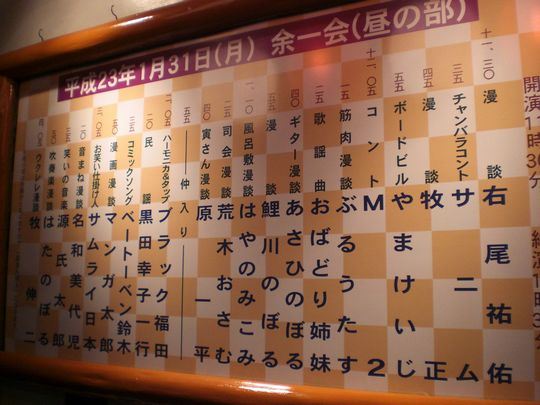 平成23年1月31日(月) 余一会(昼の部)
開演11時30分
十一、三〇 漫談 右尾祐佑
チャンバラコント サニム
四五 漫談 牧正
五五 ボードビル やまけいじ
十二、〇五 コント M2
一五 筋肉漫談 ぶるうたす
二五 歌謡曲 おばどり姉妹
四〇 ギター漫談 あさひのぼる
五五 漫談 鯉川のぼる
風呂敷漫談 はやのみこみ
二五 司会漫談 荒木おさむ
四〇 寅さん漫談 原一平
――仲入り――
ハーモニカ&タップ ブラック福田
二〇 民謡 黒田幸子一行
三五 コミックソング ベートーベン鈴木
五〇 漫画漫談 マンガ太郎
三、〇五 お笑い仕掛け人 サムライ日本
二〇 音まね漫談 名和美代児
三五 笑いの音楽 源氏太郎
五〇 吹奏楽漫談 はたのぼる
四、〇五 ウクレレ漫談 牧伸二